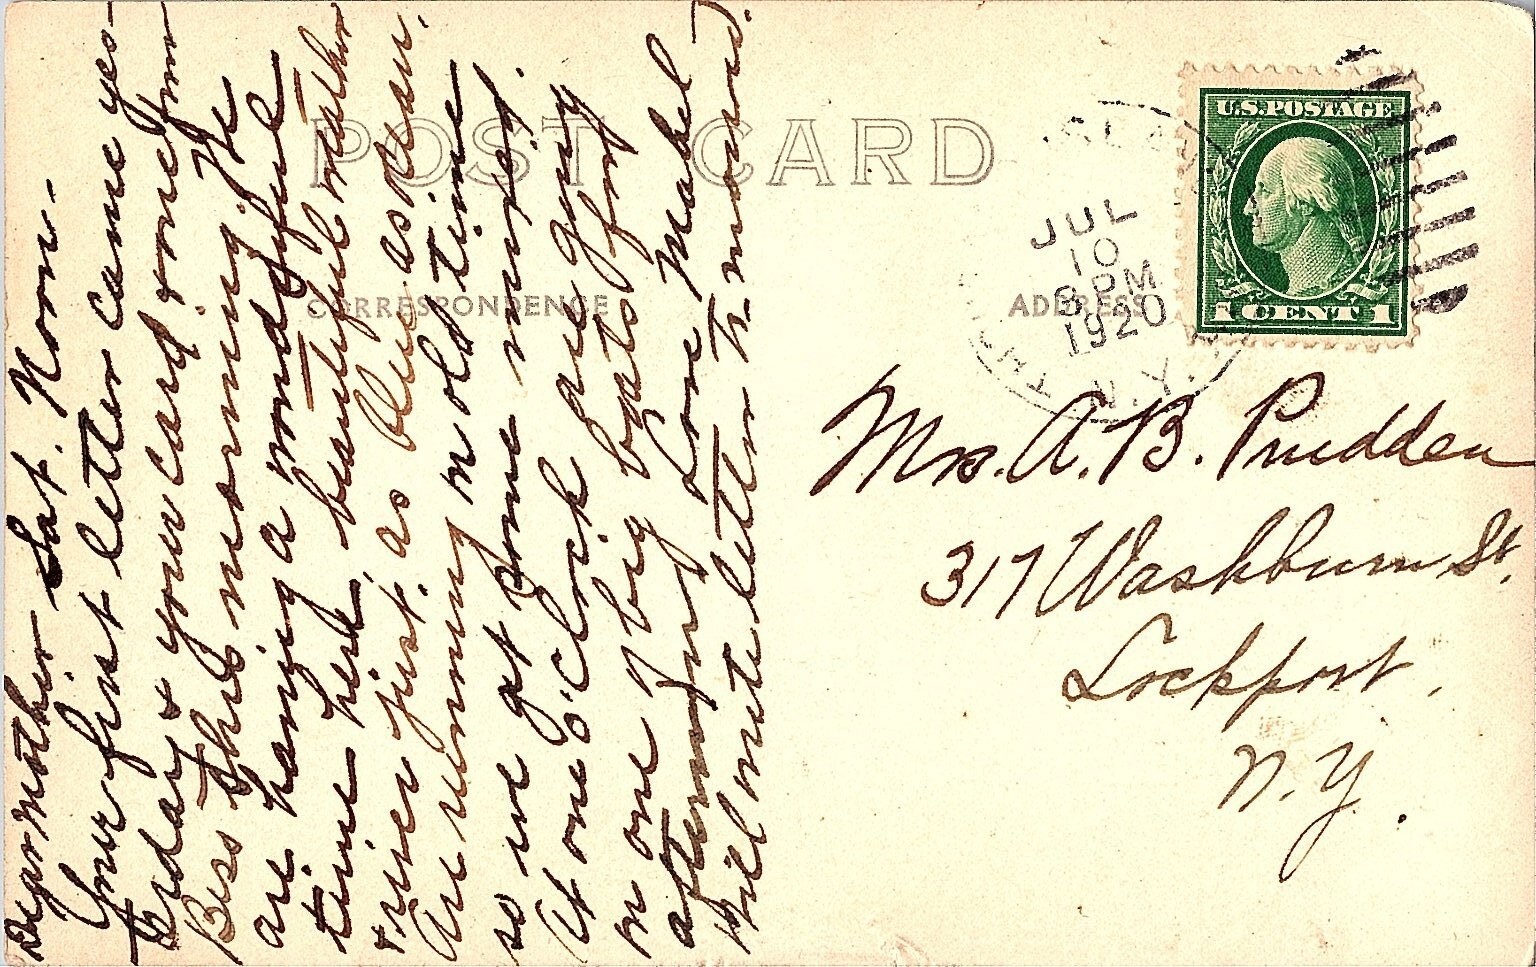 Dear Mother - Sat. Noon -
Your first letter came yes-
terday & your card & one from
Bess this morning. We
are having a wonderful
time here, beautiful weather
& river just as blue as Mear.
Are running on old time
so we get some mixed.
At one o'clock are going
on one of big boats for
afternoon. Love Mabel
Will write letter to-morrow.
POST CARD
CORRESPONDENCE
ADDRESS
JUL
10
8 PM
1920
N.Y.
U.S. POSTAGE
1 CENT 1
Mrs. A. B. Prudden
317 Washburn St.
Lockport,
N.Y.